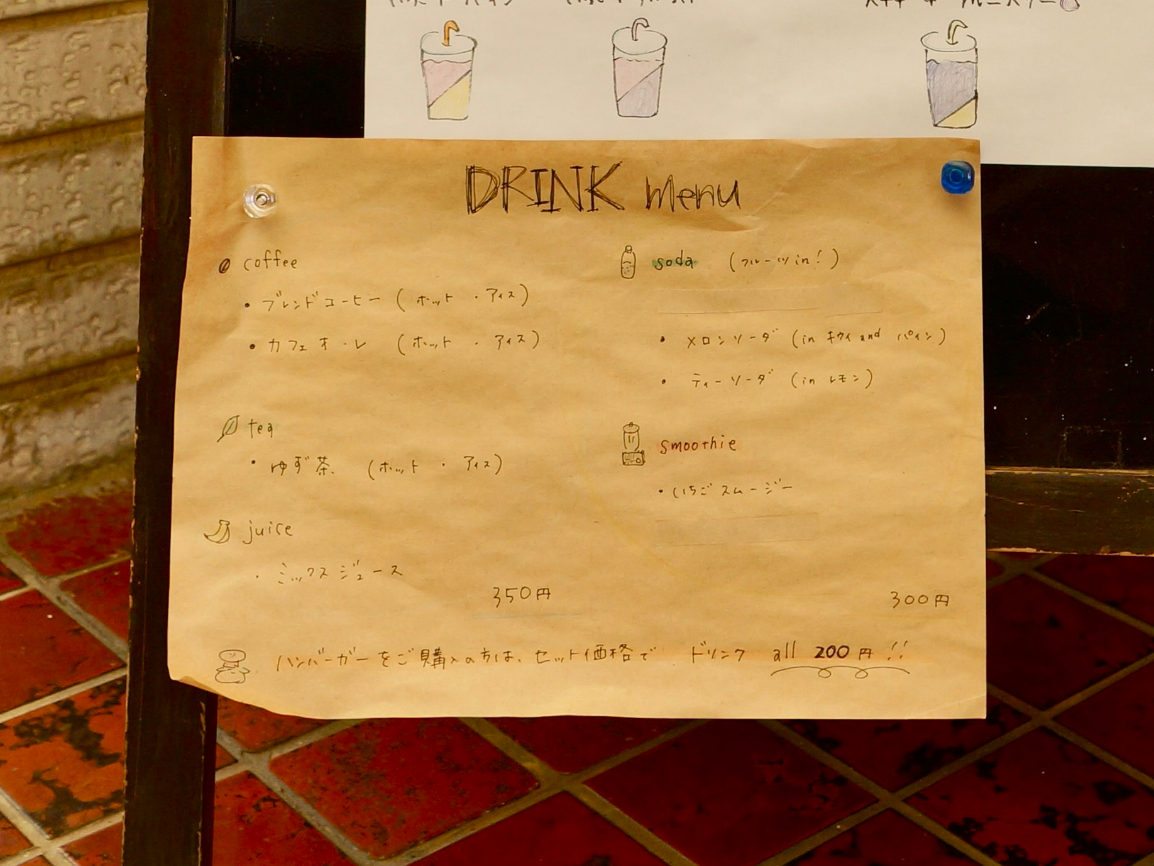 DRINK menu
coffee
・ブレンドコーヒー (ホット ・ アイス)
・カフェオ・レ (ホット ・ アイス)
tea
・ゆず茶 (ホット ・ アイス)
juice
・ミックスジュース
350円
soda (フルーツin!)
・メロンソーダ (in キウイ and パイン)
・ティーソーダ (in レモン)
smoothie
・いちごスムージー
300円
ハンバーガーをご購入の方は、セット価格で ドリンク all 200円!!